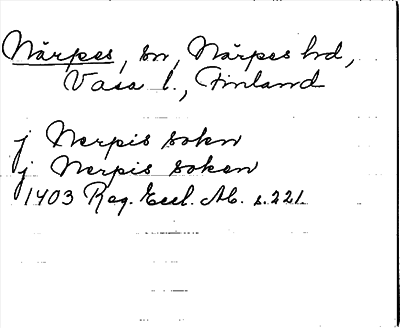 Närpes, sn, Närpes hd,
Vasa l., Finland
j Nerpis sokn
j Nerpis soken
1403 Reg. Eccl. Ab. s. 221.